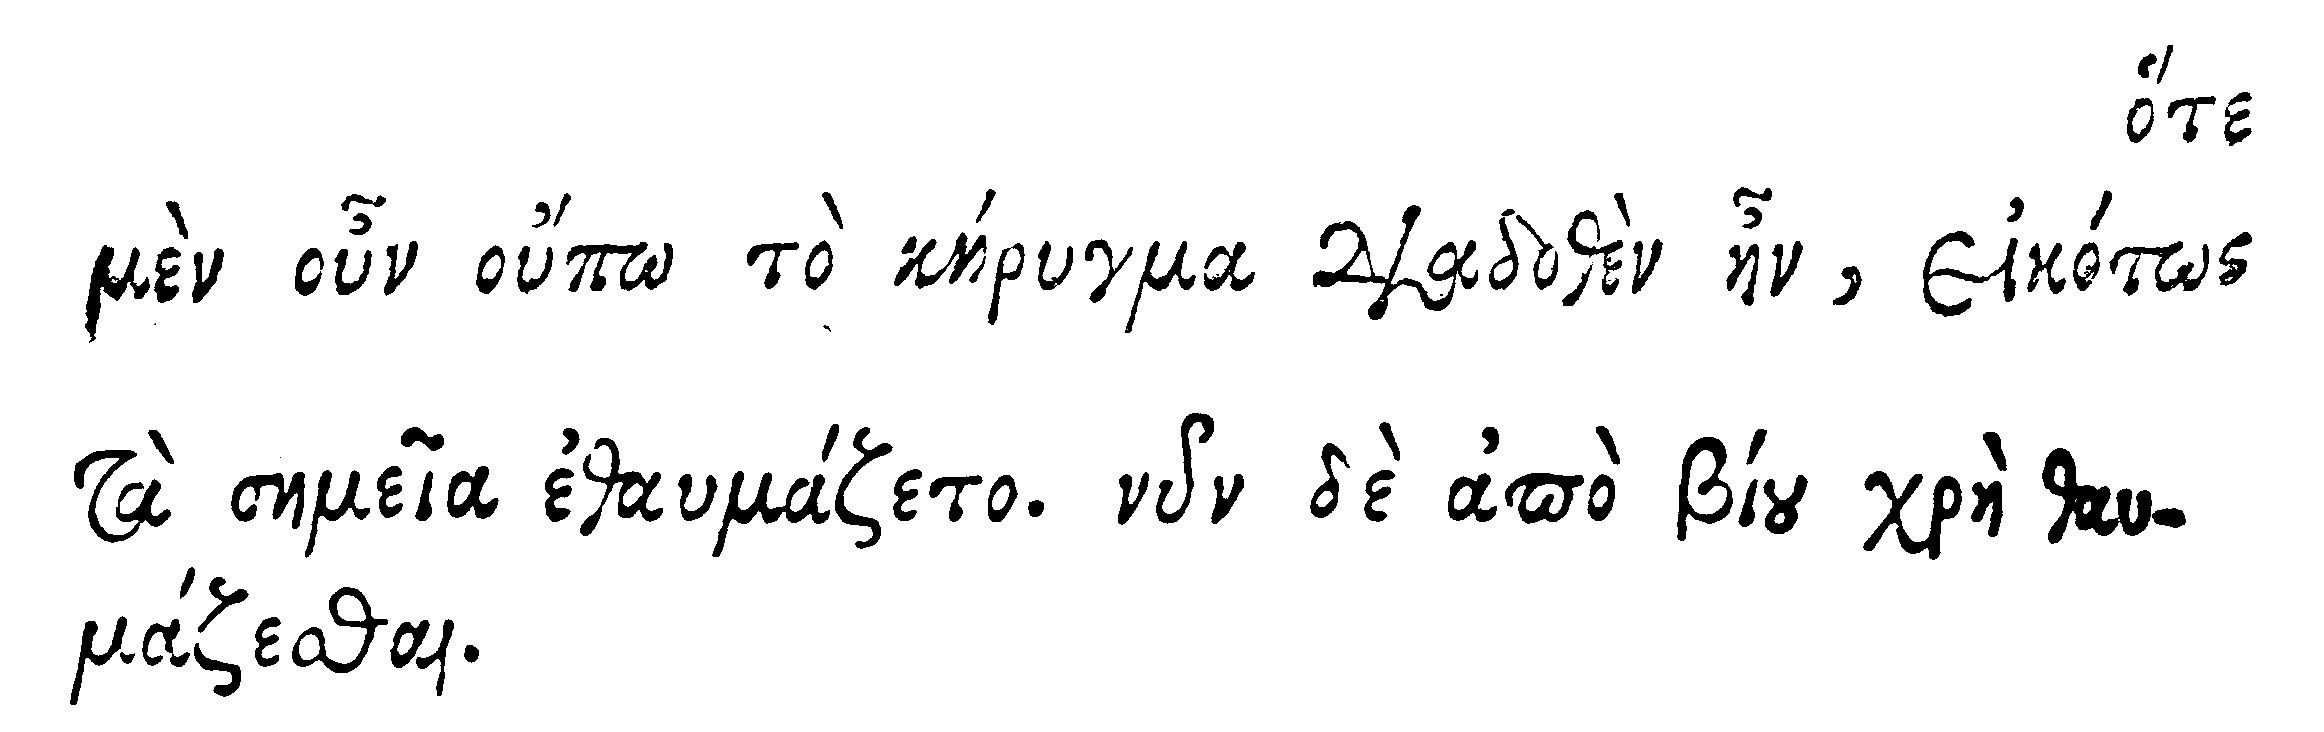 ὅτε
μὲν οὖν οὔπω τὸ κήρυγμα διαδοθὲν ἦν, εἰκότως
τὰ σημεῖα ἐθαυμάζετο. νῦν δὲ ἀπὸ βίου χρὴ θαυ-
μάζεσθαι.